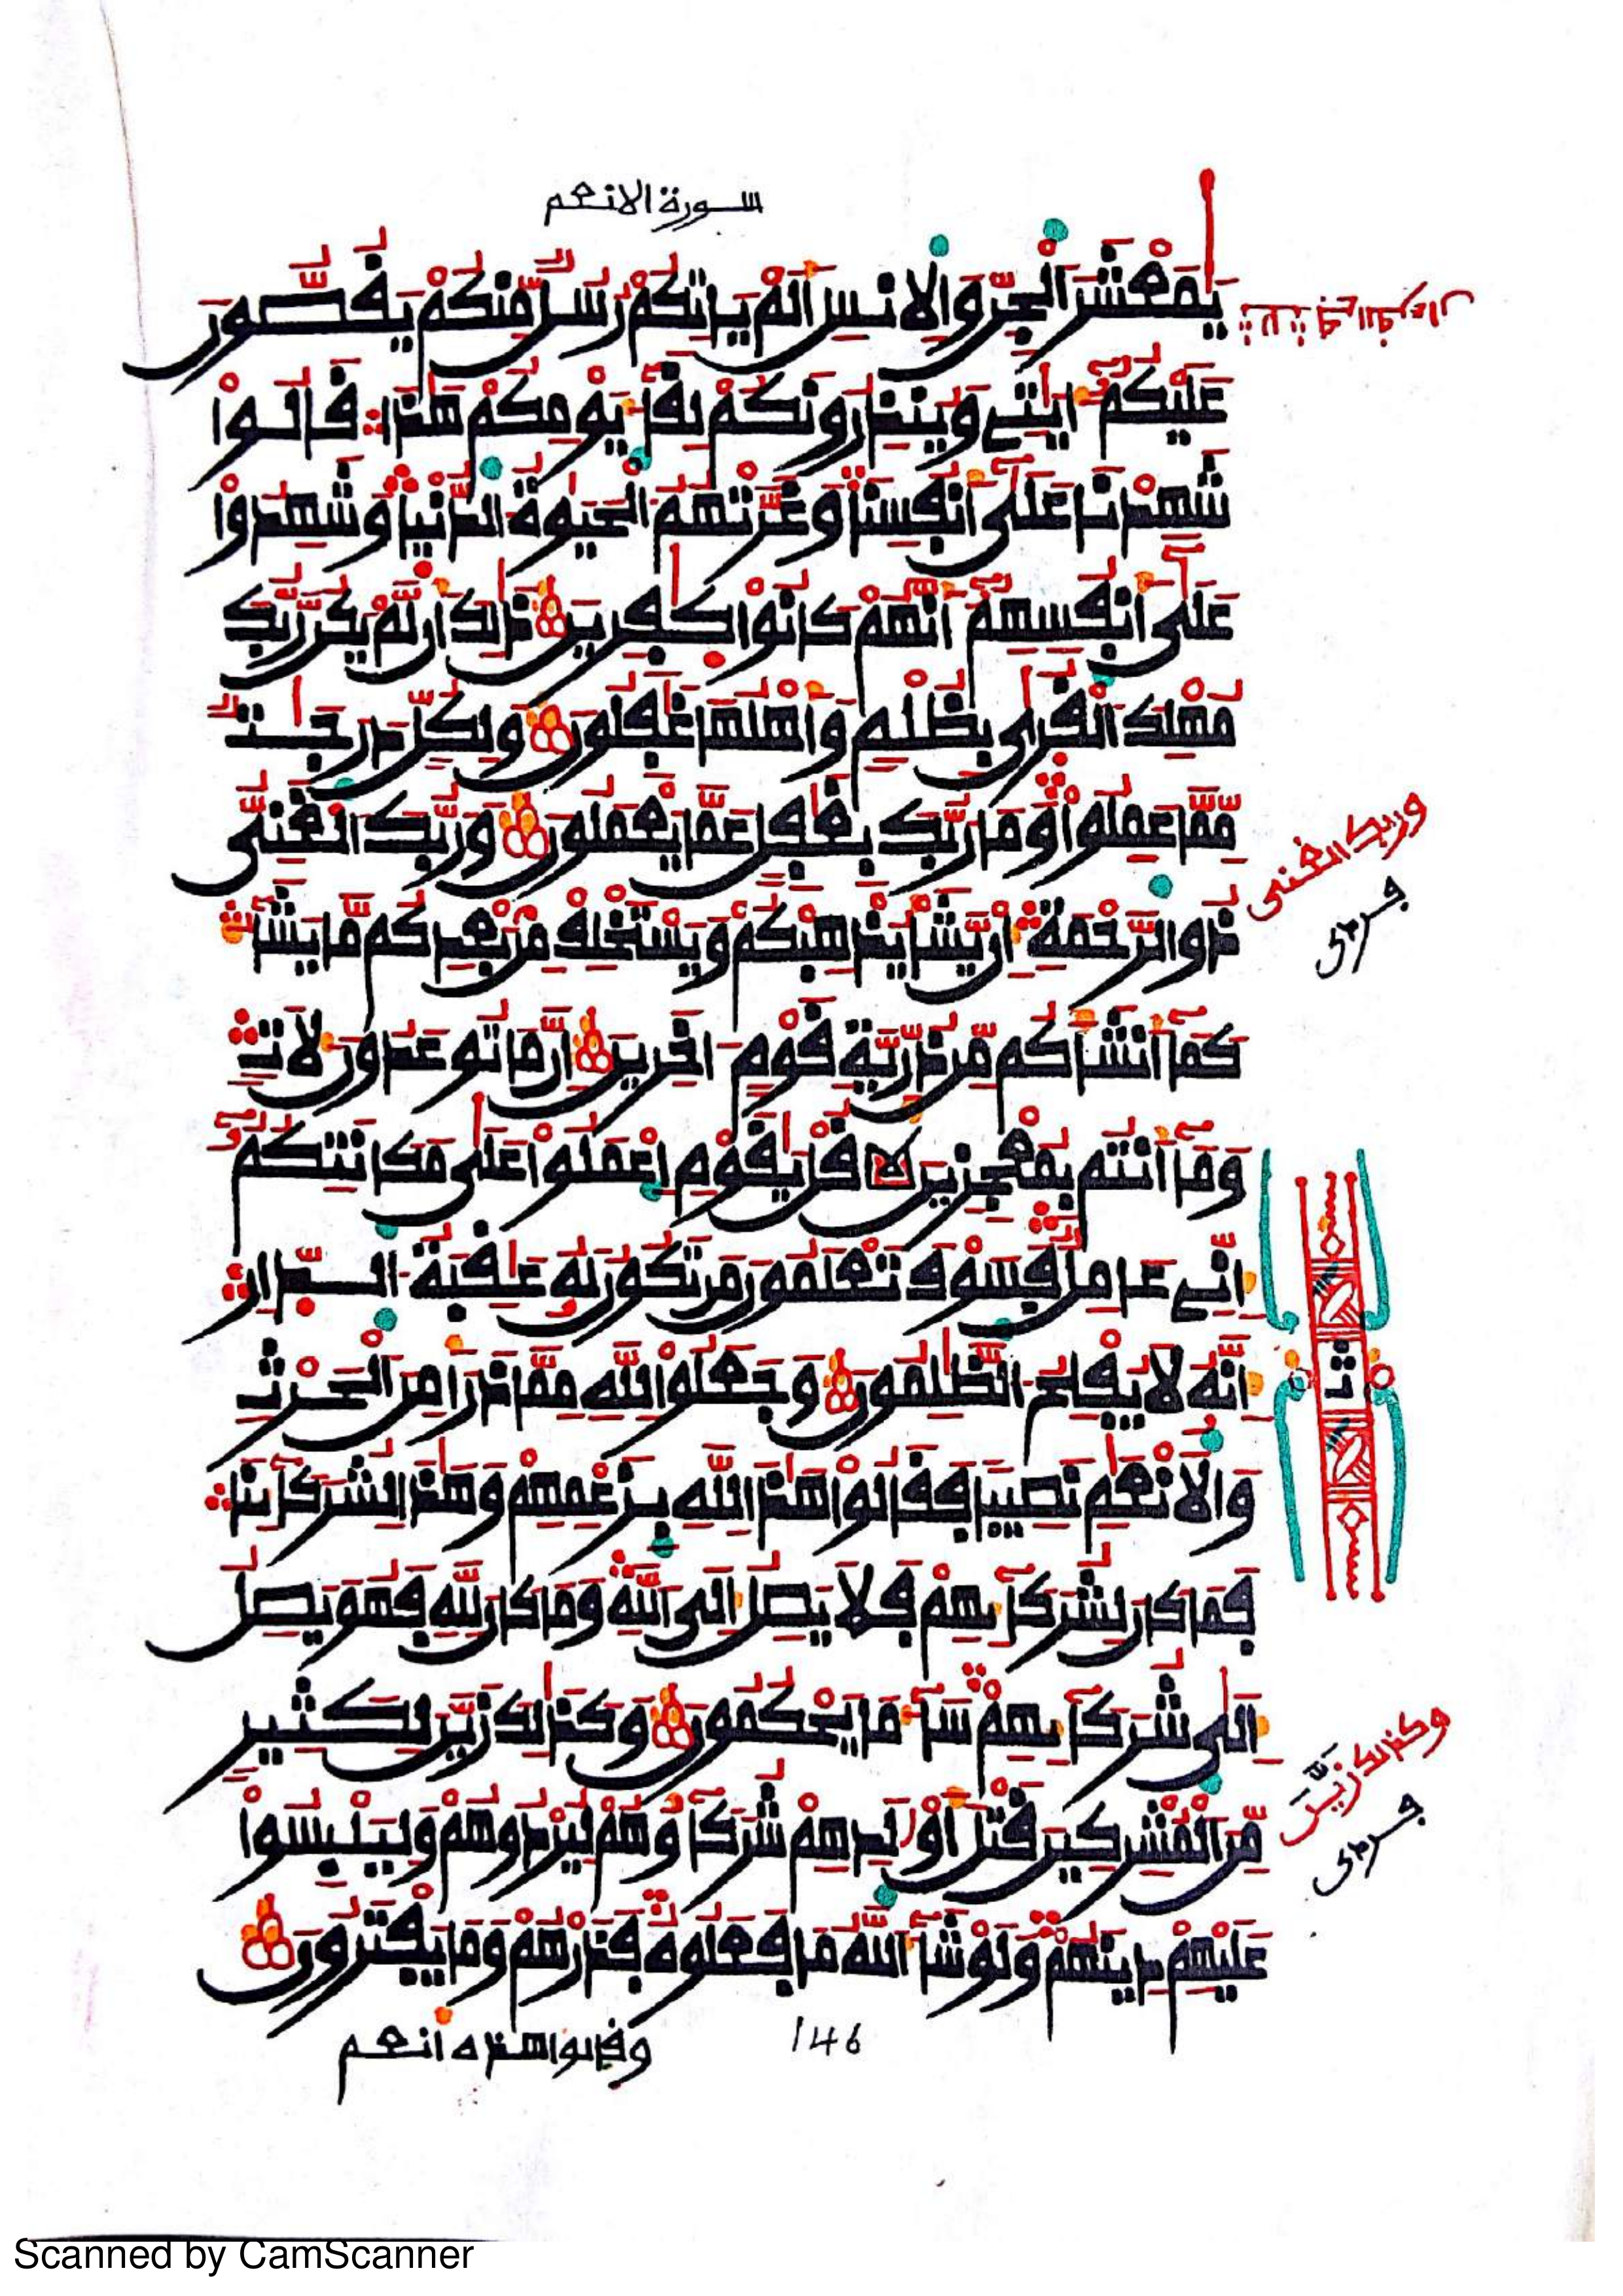 سورة الانعم
يَٰمَعْشَرَ اَ۬لْجِنِّ وَالِانسِ أَلَمْ يَاتِكُمْ رُسُلٌ مِّنكُمْ يَقُصُّونَ
عَلَيْكُمُۥٓ ءَايَٰتِے وَيُنذِرُونَكُمْ لِقَآءَ يَوْمِكُمْ هَٰذَا قَالُواْ
شَهِدْنَا عَلَىٰٓ أَنفُسِنَا وَغَرَّتْهُمُ اُ۬لْحَيَوٰةُ اُ۬لدُّنْيَا وَشَهِدُواْ
عَلَىٰٓ أَنفُسِهِمُۥٓ أَنَّهُمْ كَانُواْ كَٰفِرِينَ ذَٰلِكَ أَن لَّمْ يَكُن رَّبُّكَ
مُهْلِكَ اَ۬لْقُرَىٰ بِظُلْمٍ وَأَهْلُهَا غَٰفِلُونَ وَلِكُلٍّ دَرَجَٰتٌ
مِّمَّا عَمِلُواْ وَمَا رَبُّكَ بِغَٰفِلٍ عَمَّا يَعْمَلُونَ وَرَبُّكَ اَ۬لْغَنِيُّ
ذُو اُ۬لرَّحْمَةِ إِنْ يَّشَأْ يُذْهِبْكُمْ وَيَسْتَخْلِفْ مِنۢ بَعْدِكُم مَّا يَشَآءُ
كَمَآ أَنشَأَكُم مِّن ذُرِّيَّةِ قَوْمٍ ءَاخَرِينَ إِنَّ مَا تُوعَدُونَ لَأٓتٍ
وَمَآ أَنتُم بِمُعْجِزِينَ قُلْ يَٰقَوْمِ اِ۪عْمَلُواْ عَلَىٰ مَكَانَتِكُمُۥٓ
إِنِّے عَامِلٌ فَسَوْفَ تَعْلَمُونَ مَن تَكُونُ لَهُۥ عَٰقِبَةُ اُ۬لدِّارِ
إِنَّهُۥ لَا يُفْلِحُ اُ۬لظَّٰلِمُونَ وَجَعَلُواْ لِلهِ مِمَّا ذَرَأَ مِنَ اَ۬لْحَرْثِ
وَالَانْعَٰمِ نَصِيباً فَقَالُواْ هَٰذَا لِلهِ بِزَعْمِهِمْ وَهَٰذَا لِشُرَكَآئِنَا
فَمَا كَانَ لِشُرَكَآئِهِمْ فَلَا يَصِلُ إِلَى اَ۬للَّهِ وَمَا كَانَ لِلهِ فَهُوَ يَصِلُ
إِلَىٰ شُرَكَآئِهِمْ سَآءَ مَا يَحْكُمُونَ وَكَذَٰلِكَ زَيَّنَ لِكَثِيرٍ
مِّنَ اَ۬لْمُشْرِكِينَ قَتْلَ أَوْلَٰدِهِمْ شُرَكَآؤُهُمْ لِيُرْدُوهُمْ وَلِيَلْبِسُواْ
عَلَيْهِمْ دِينَهُمْ وَلَوْ شَآءَ اَ۬للَّهُ مَا فَعَلُوهُ فَذَرْهُمْ وَمَا يَفْتَرُونَ
وربك الغنى
وكذالك زيَّن
146
وقالوا هذه أنعم
Scanned by CamScanner